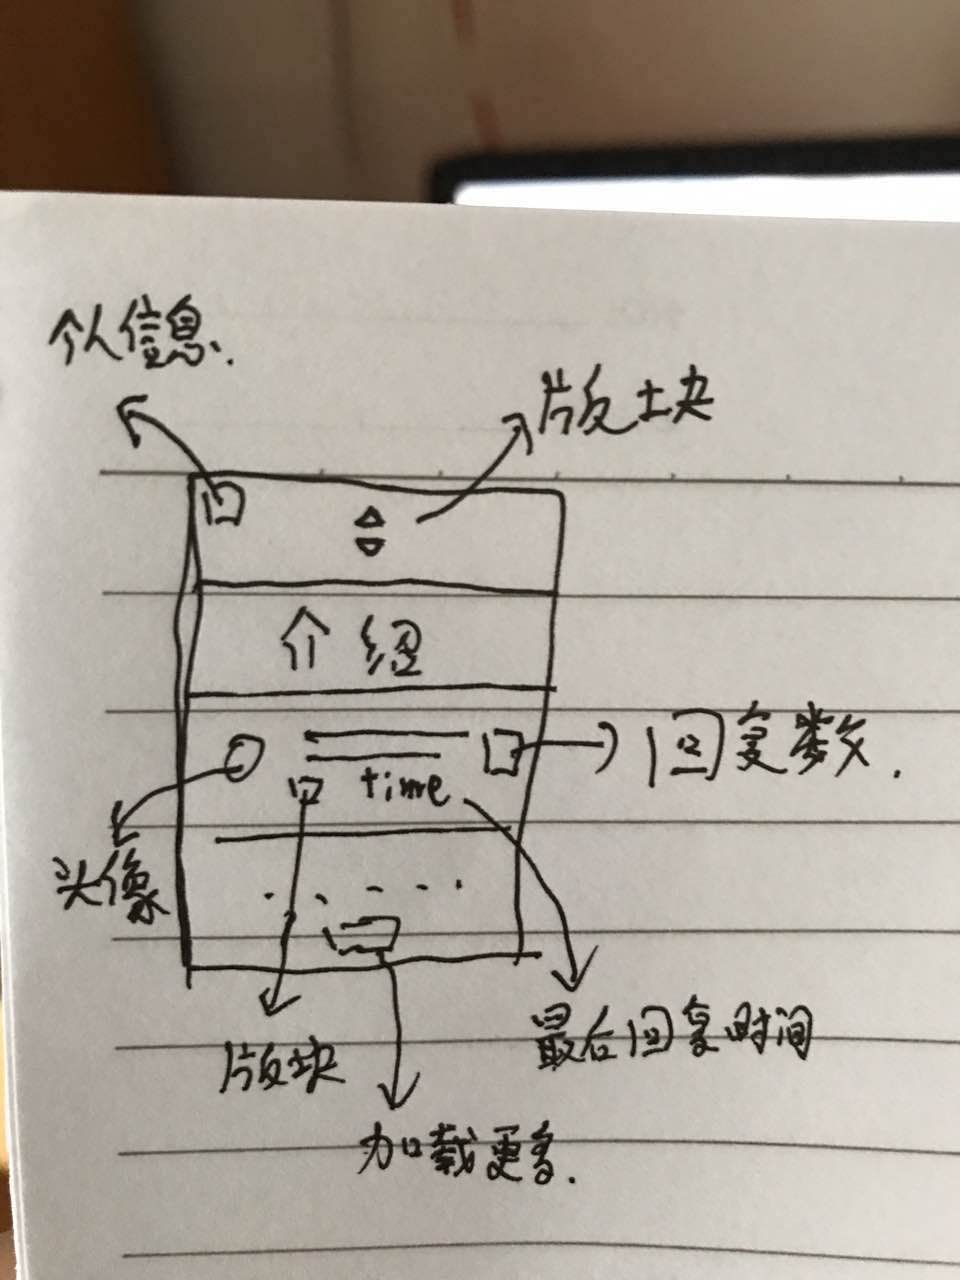 个人信息.
版块
介绍
回复数.
time
头像
最后回复时间
版块
加载更多.